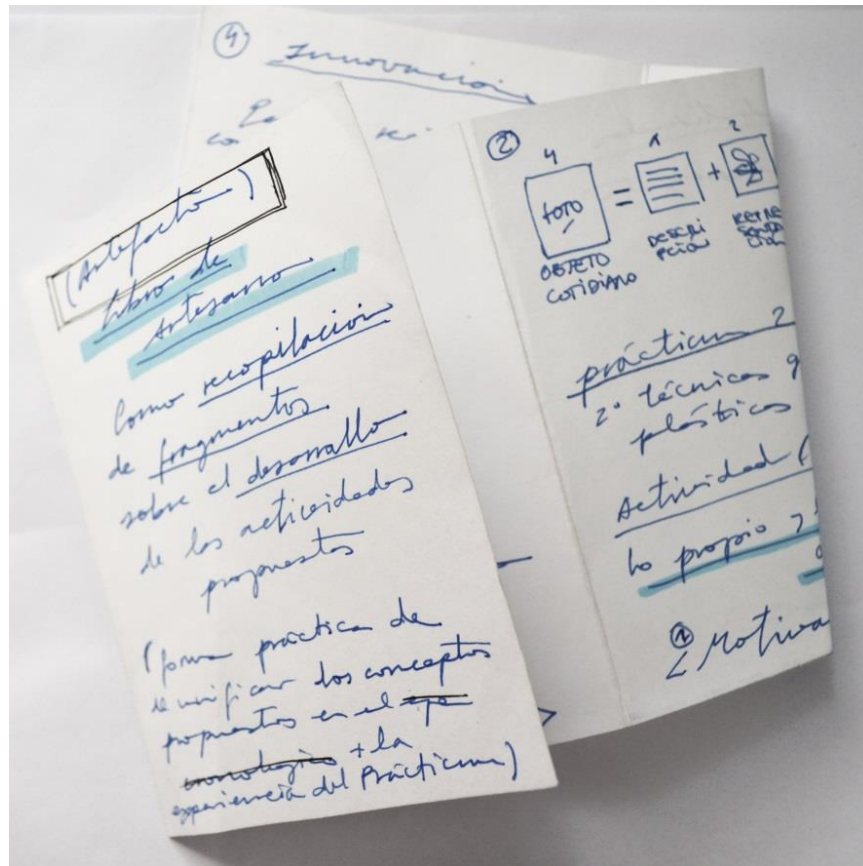 ④ Innovación
La
co
(Artefacto)
libro de
Artesano
Como recopilación
de fragmentos
sobre el desarrollo
de las actividades
propuestas
(forma práctica de
unificar los conceptos
propuestos en el eje
cronológico + la
experiencia del Prácticum)
②
4 1 2
FOTO = +
OBJETO
COTIDIANO
DESCRI
PCIÓN
REPRE
SENTA
CIÓN
prácticum 2
2º técnicas g
plásticas
Actividad (
lo propio y
① Motiva